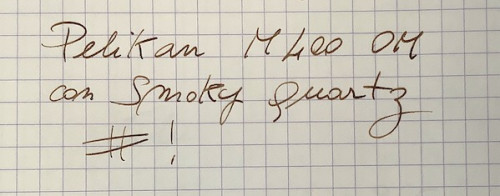 Pelikan M400 OM
con Smoky Quartz
#!